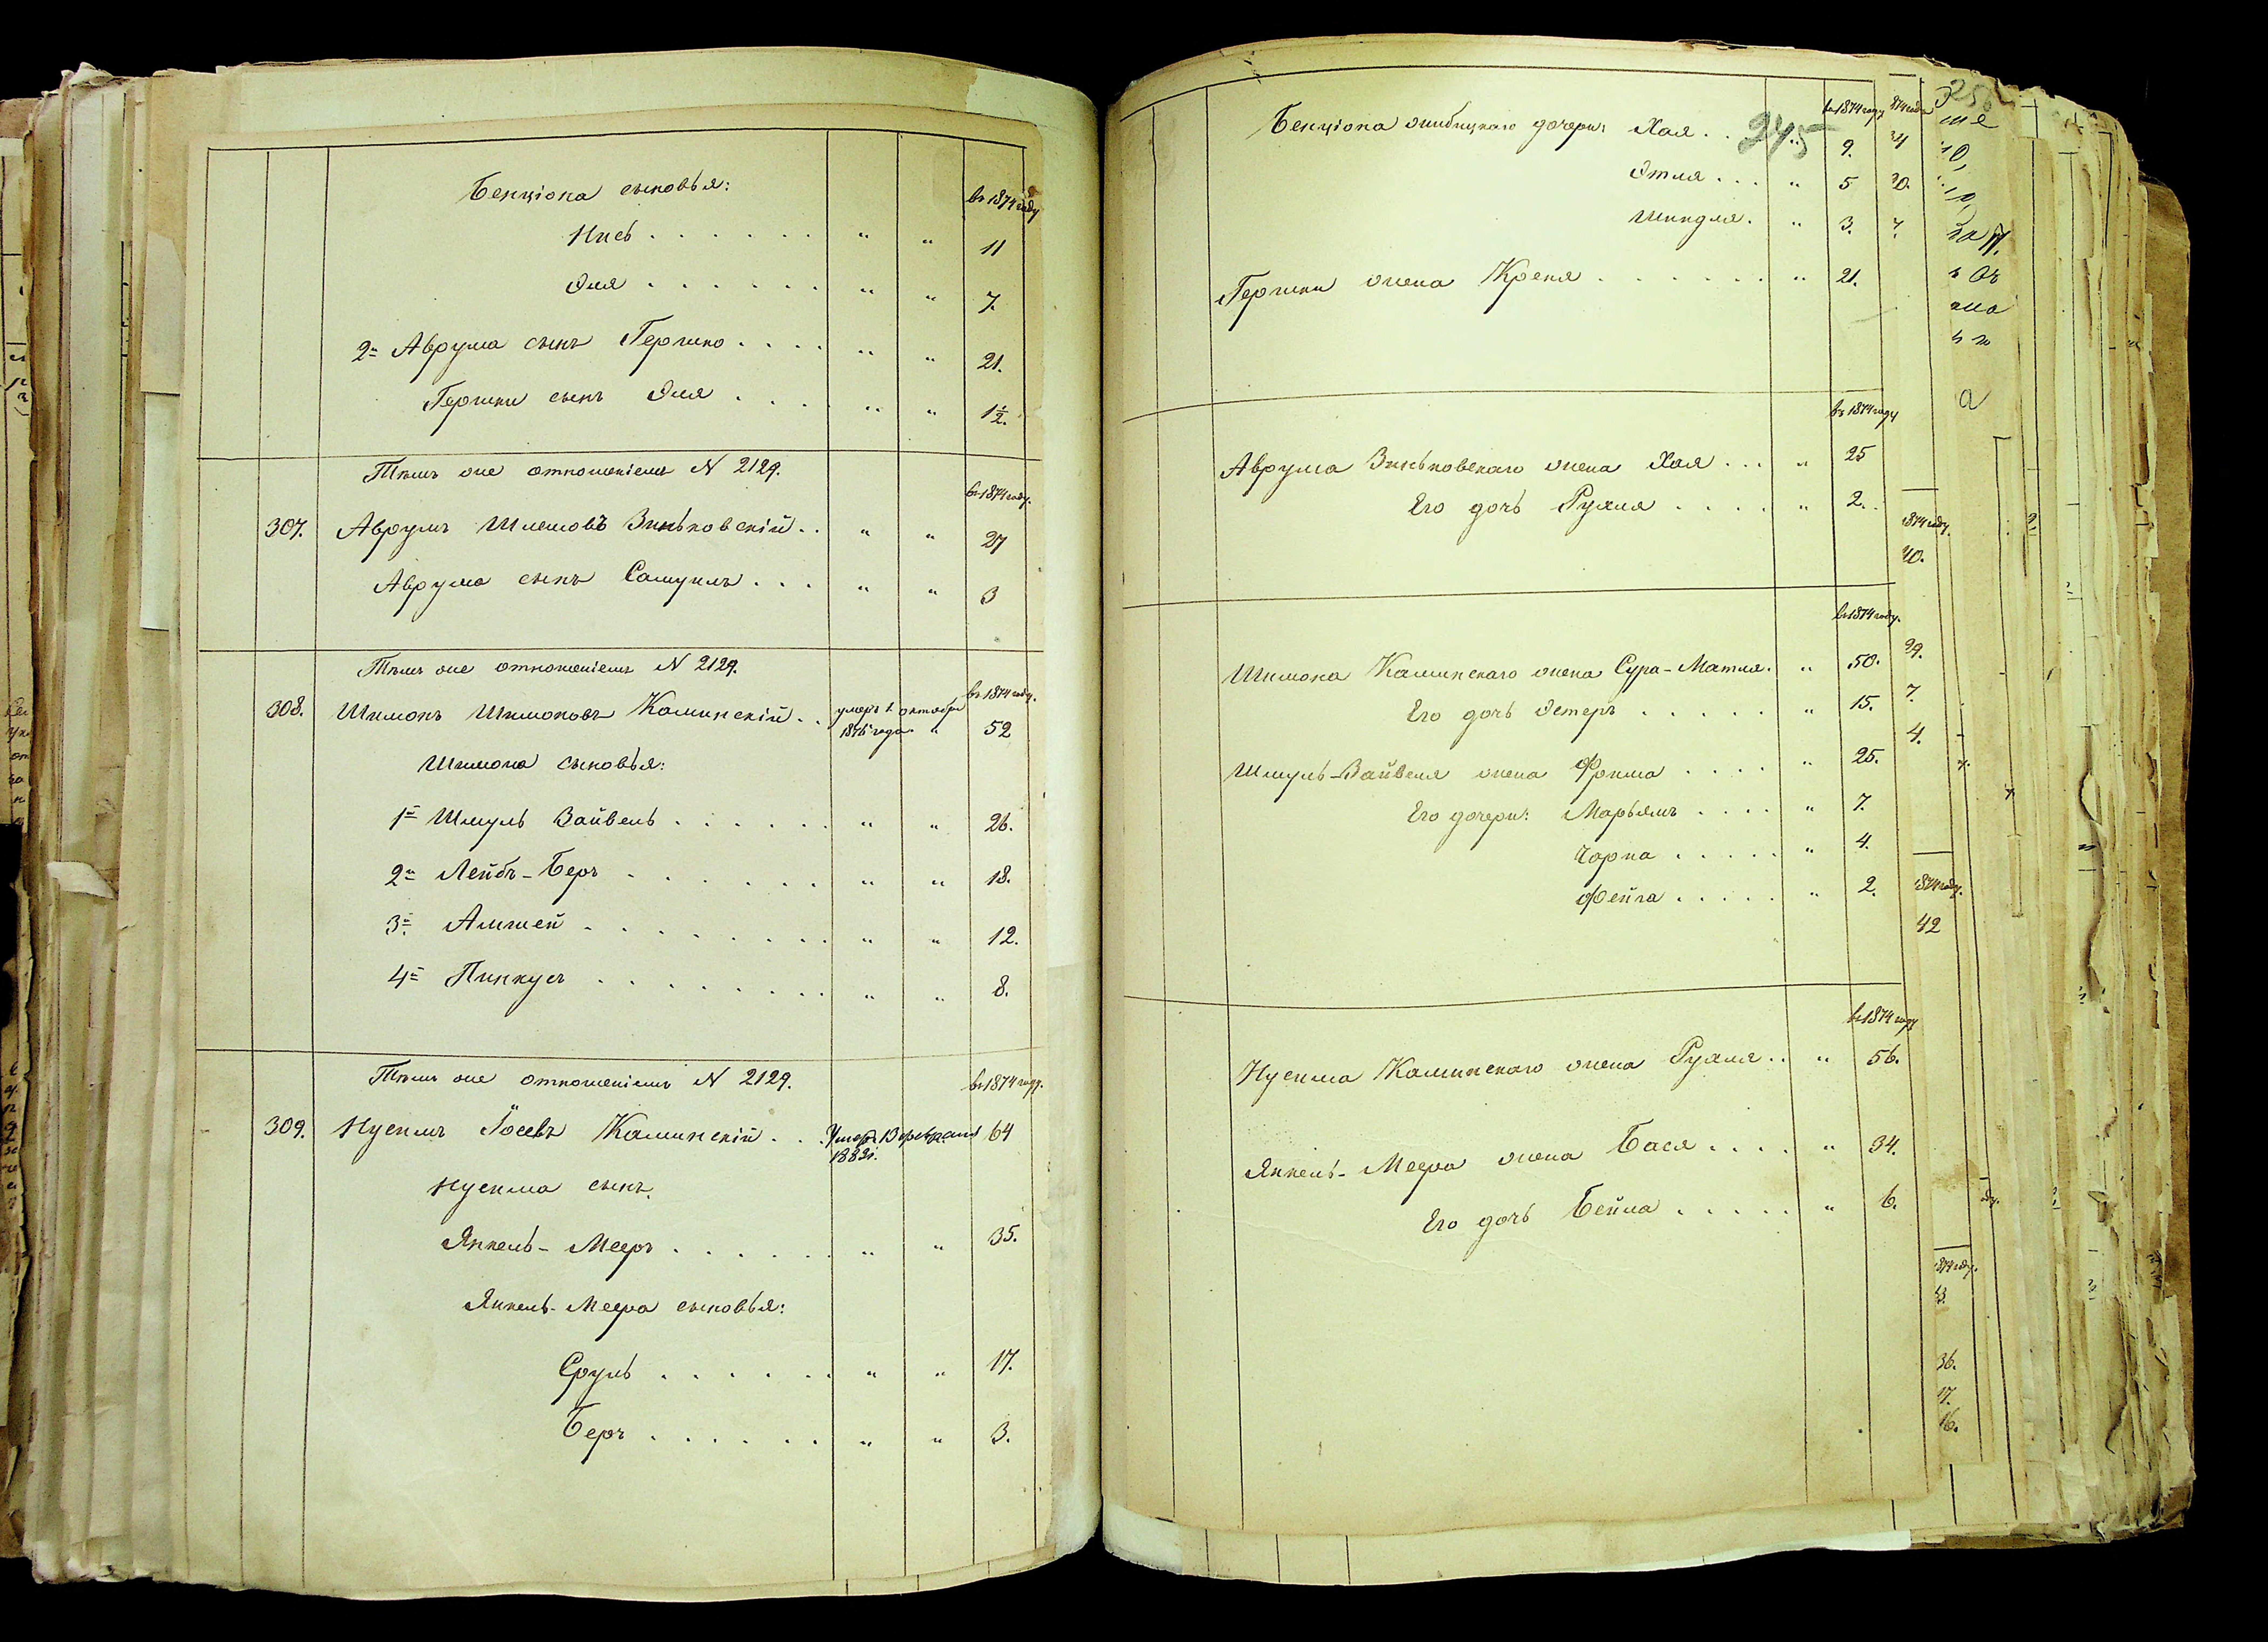 Бенціона сыновья:
въ 1874 году
Ицсь . . . . . . " " 11
Эля . . . . . . " " 7.
2й Аврума сынъ Гершко . . . . " " 21.
Гершки сынъ Эля . . . . " " 1½.
Тѣмъ же отношеніемъ N 2129.
въ 1874 году.
307. Аврумъ Шлемовъ Зиньковскій . . " " 27
Аврума сынъ Самуилъ . . . " " 3
Тѣмъ же отношеніемъ N 2129.
въ 1874 году.
308. Шимонъ Шимоновъ Каминскій . . умеръ 1 октября 1876 года " 52
Шимона сыновья:
1й Шмуль Вайвель . . . . . . " " 26.
2й Лейбъ-Беръ . . . . . . " " 18.
3й Амшей . . . . . . . . " " 12.
4й Пинкусъ . . . . . . . . " " 8.
Тѣмъ же отношеніемъ N 2129.
въ 1874 году.
309. Нусимъ Іосевъ Каминскій . . . Умеръ 13 февраля 1883г. 64
Нусима сынъ
Янкель-Мееръ . . . . . . " " 35.
Янкель-Меера сыновья:
Сруль . . . . . . " " 17.
Беръ . . . . . . " " 3.
245
въ 1874 году
Бенціона дочери: Хая . . " 9.
Этля . . . " 5
Шиндля . " 3.
Гершки жена Креня . . . . . . " 21.
въ 1874 году
Аврума Зиньковскаго жена Хая . . . " 25
Его дочь Рухля . . . . " 2.
въ 1874 году.
Шимона Каминскаго жена Сура-Матля. " 50.
Его дочь Эстеръ . . . . . " 15.
Шмуль-Вайвеля жена Фрима . . . . " 25.
Его дочери: Марьямъ . . . . " 7.
Чарна . . . . . " 4.
Фейга . . . . . " 2.
въ 1874 году
Нусима Каминскаго жена Рухля . . " 56.
Янкель-Меера жена Бася . . . . " 34.
Его дочь Бейла . . . . . " 6.